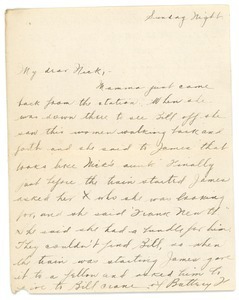 Sunday Night.
My dear Nick,-
Mamma just came
back from the station. When she
was down there to see Bill off she
saw this women walking back and
forth and she said to James that
looks like Nick's aunt. Finally
just before the train started James
asked her who she was looking
for, and she said Frank
she said she had a bundle for him.
They couldn't find Bill, so when
the train was starting James gave
it to a fellow and asked him to
give to Bill Crane of Battery F